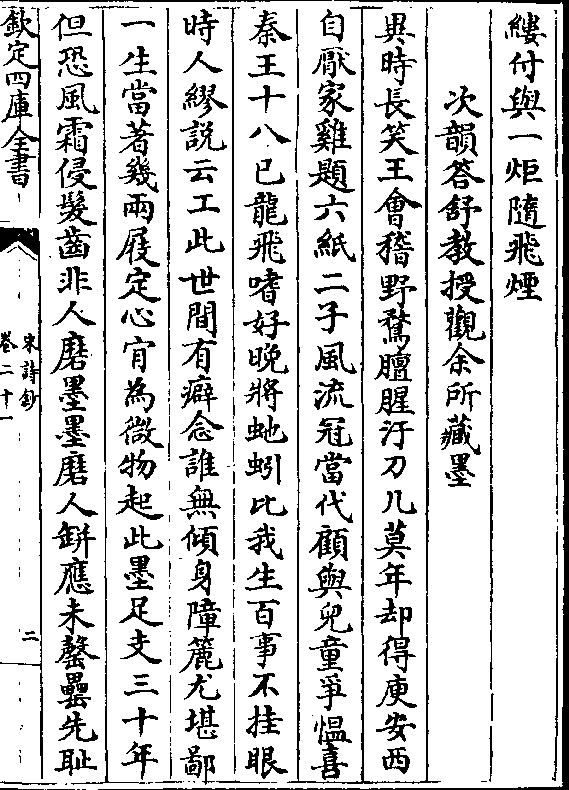 縷付與一炬隨飛煙
次韻答舒教授觀余所藏墨
異時長笑王會稽野鶩膻腥汙刀几莫年却得庾安西
自厭家雞題六紙二子風流冠當代顧與兒童爭愠喜
秦王十八已龍飛嗜好晩將蛇蚓比我生百事不挂眼
時人繆説云工此世間有癖念誰無傾身障簏尤堪鄙
一生當著幾兩屐定心肯為微物起此墨足支三十年
但恐風霜侵髮齒非人磨墨墨磨人缾應未罄罍先耻
欽定四庫全書
宋詩鈔
卷二十一
二